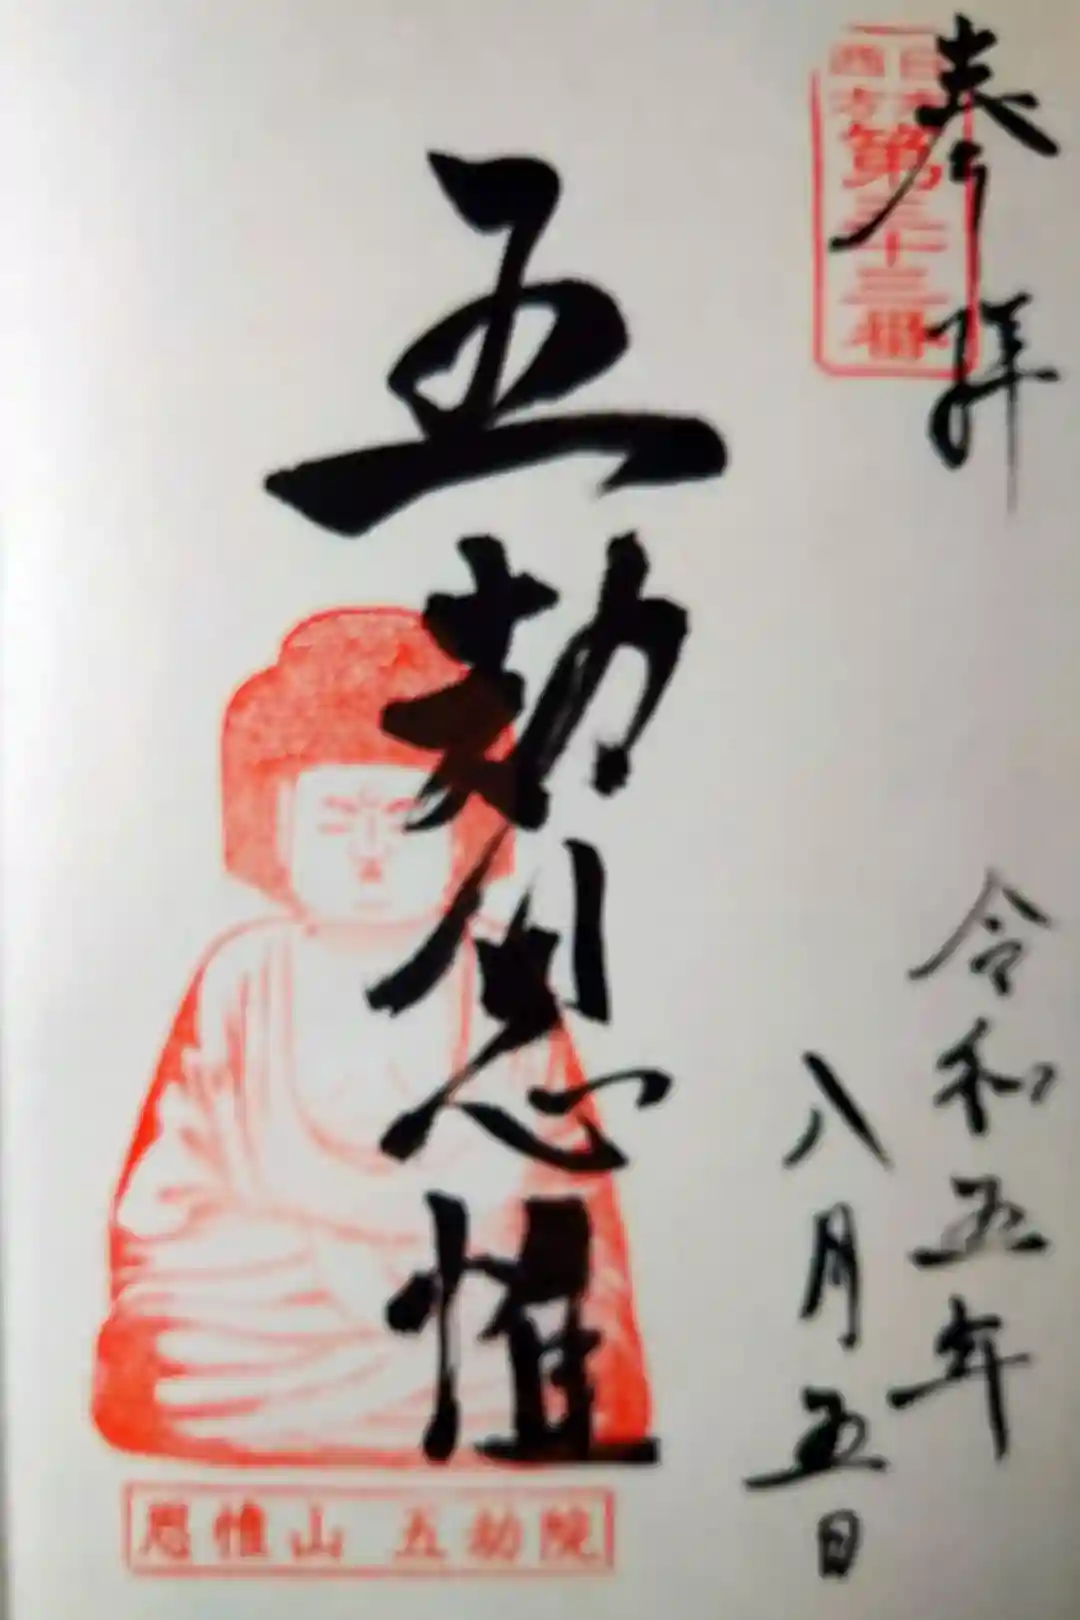 奉拝
日本
西方
第三十三番
五劫思惟
令和五年
八月五日
思惟山 五劫院